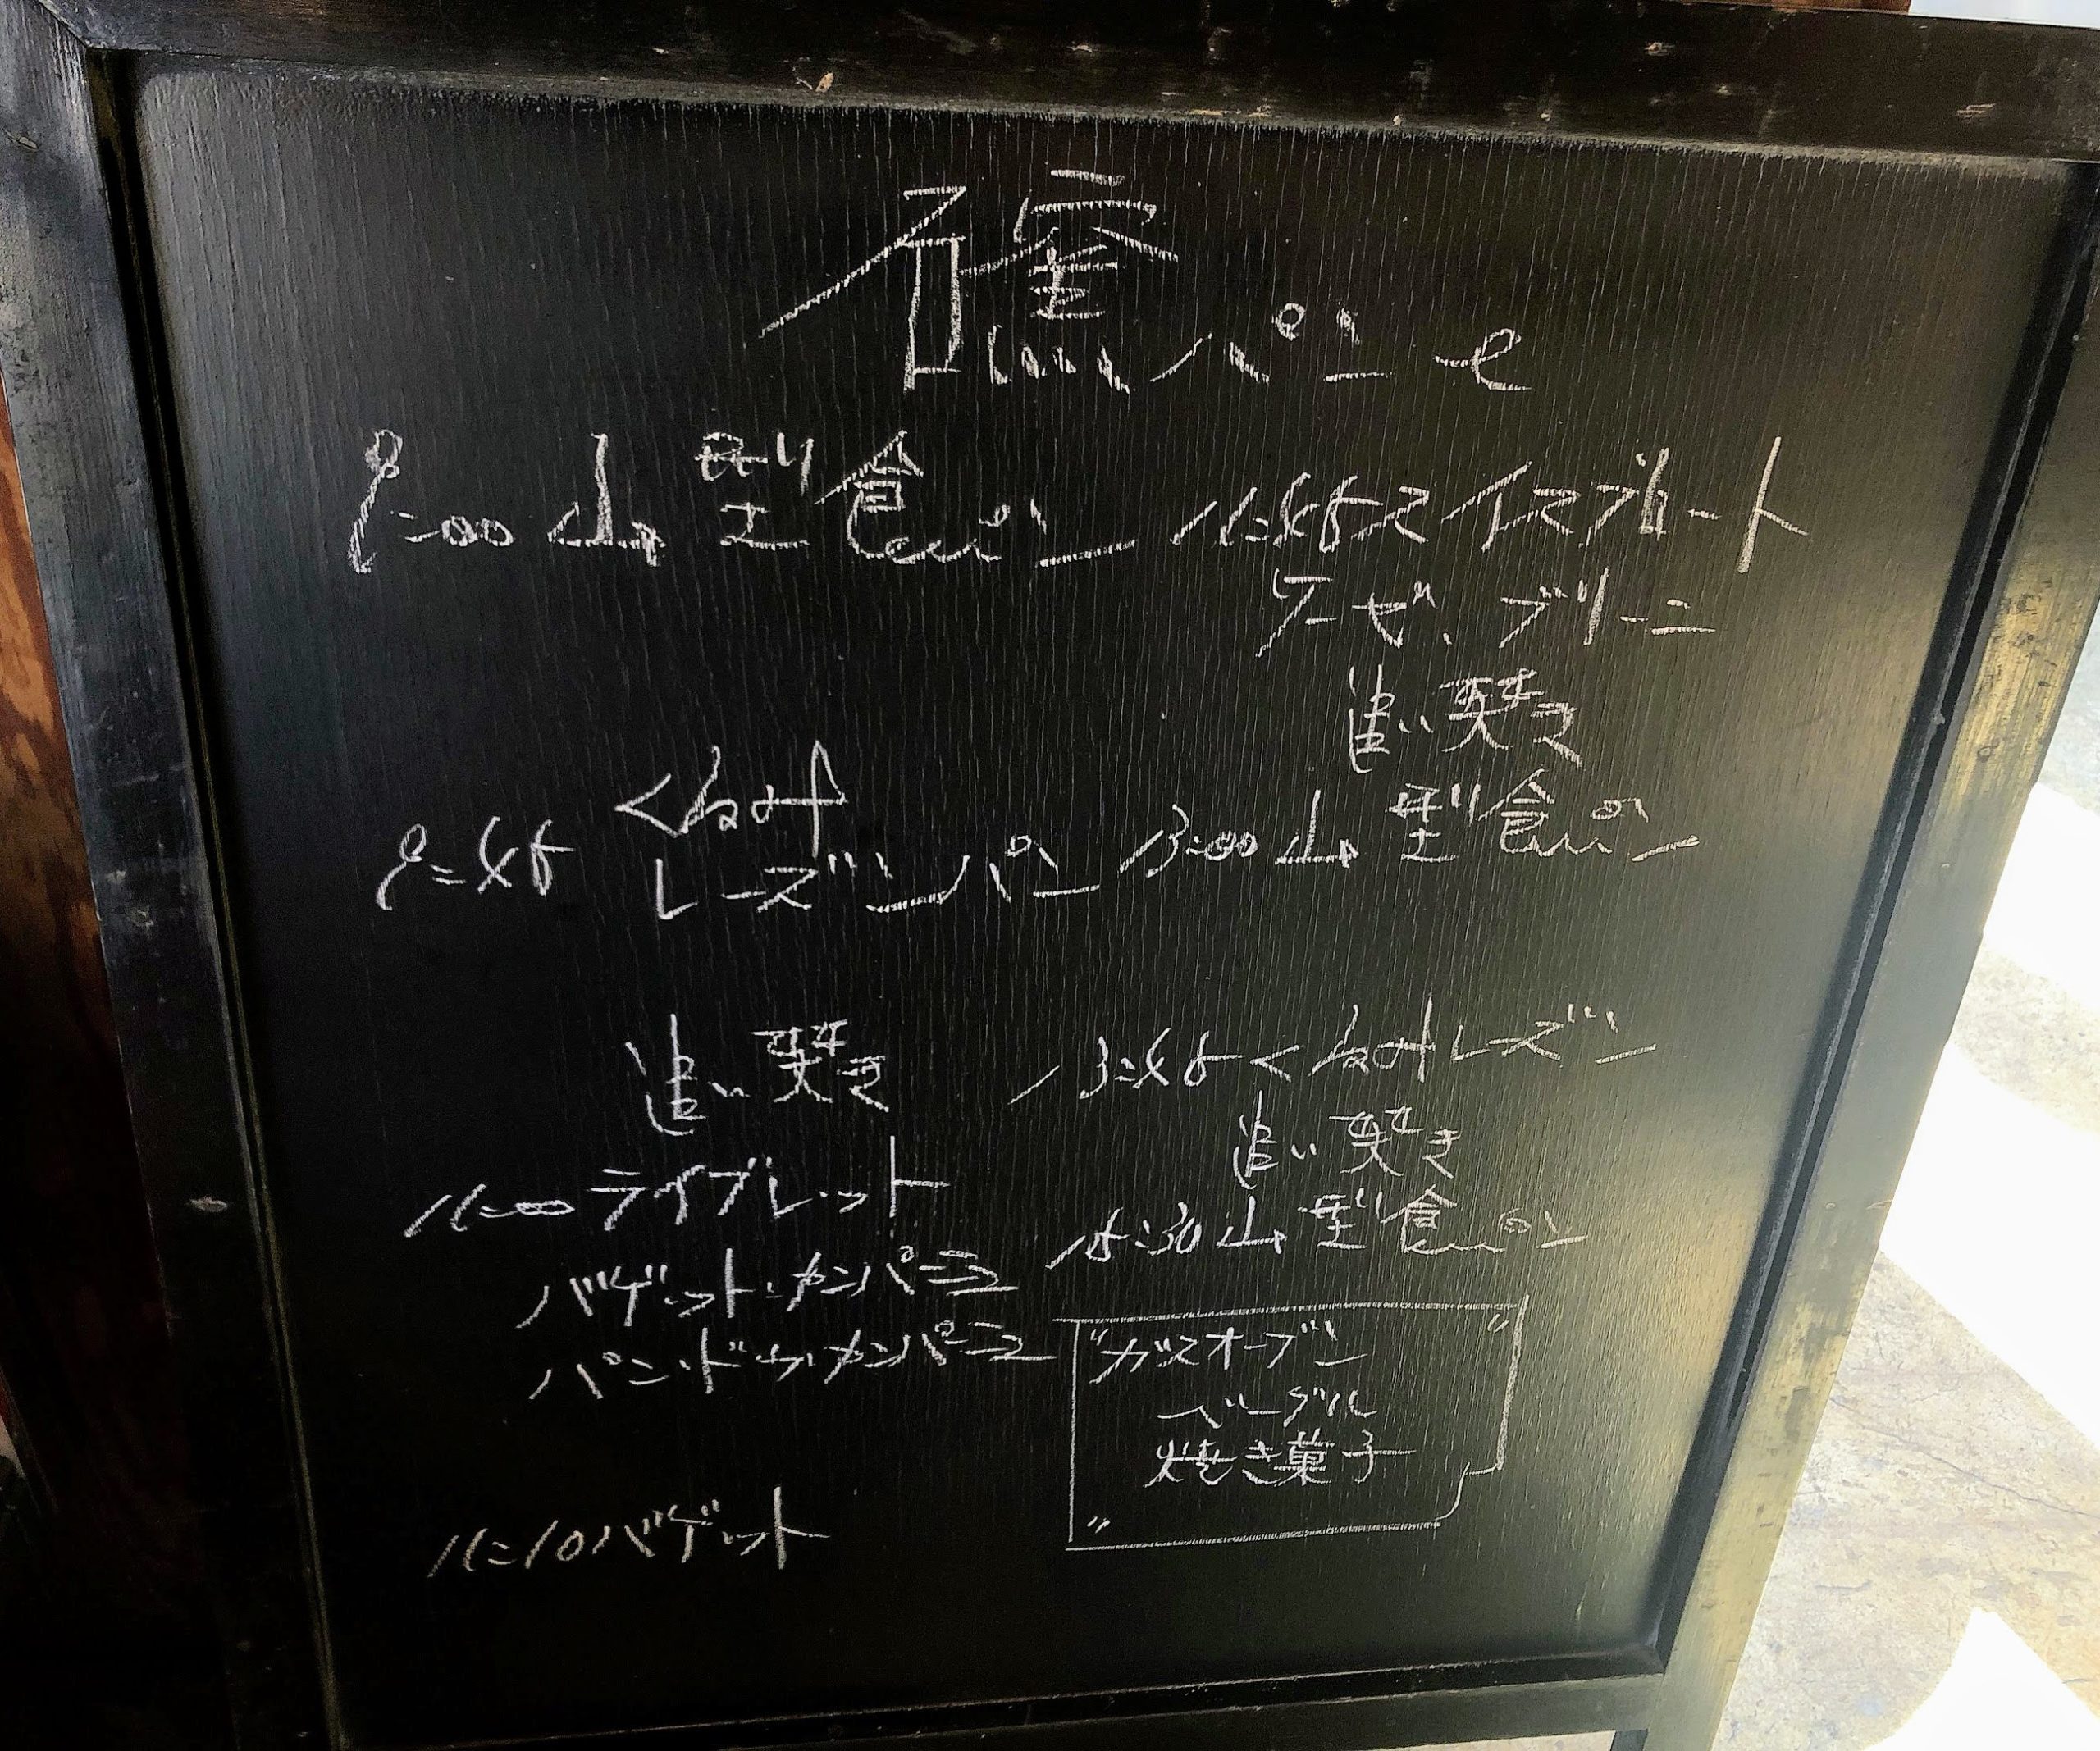 石窯パン
8:00 山型食パン
9:45 くるみ
レーズンパン
追い焚き
11:00 ライブレット
バゲット・カンパーニュ
パン・ド・カンパーニュ
11:10 バゲット
11:45 スイスブロート
ワーゼ、ブリーニ
追い焚き
13:00 山型食パン
13:45 くるみレーズン
追い焚き
15:30 山型食パン
"ガスオーブン"
ベーグル
焼き菓子
"